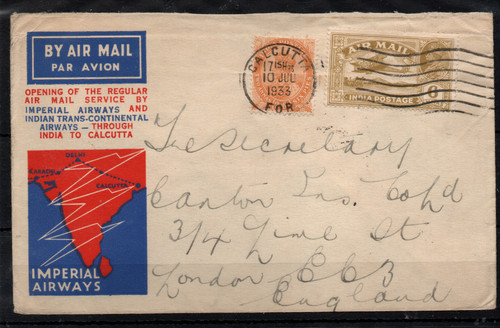 BY AIR MAIL
PAR AVION
OPENING OF THE REGULAR
AIR MAIL SERVICE BY
IMPERIAL AIRWAYS AND
INDIAN TRANS-CONTINENTAL
AIRWAYS — THROUGH
INDIA TO CALCUTTA
DELHI
KARACHI
CALCUTTA
IMPERIAL
AIRWAYS
CALCUTTA
10 JUL
1933
AIR MAIL
INDIA POSTAGE
6
The Secretary
Canton Ins. Co Ld
3/4 Lime St
London EC3
England